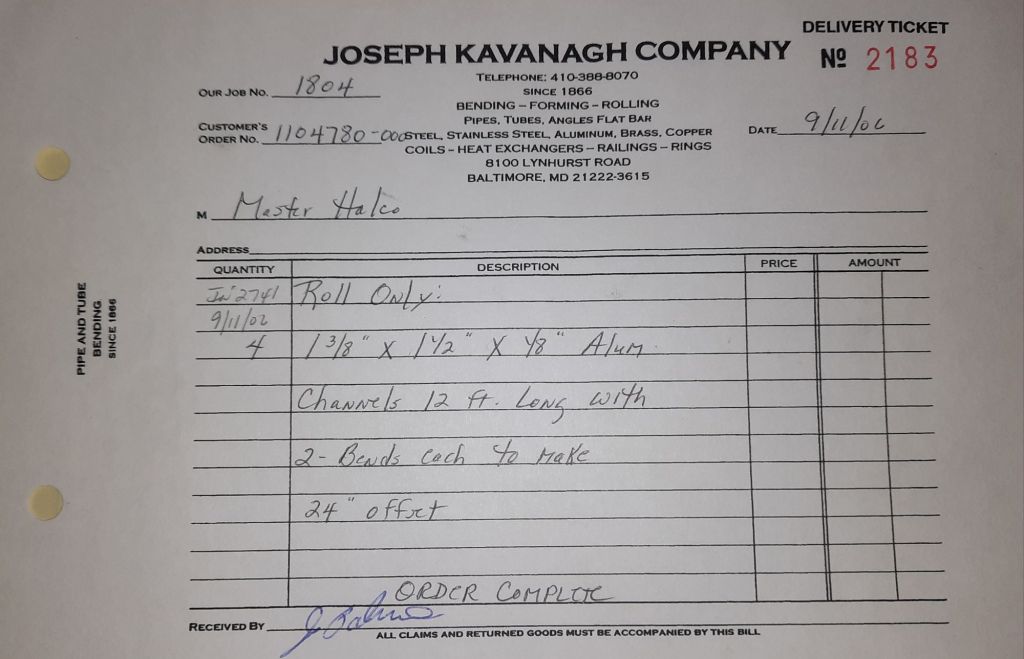 DELIVERY TICKET
JOSEPH KAVANAGH COMPANY
Nº 2183
TELEPHONE: 410-388-8070
SINCE 1866
BENDING – FORMING – ROLLING
PIPES, TUBES, ANGLES FLAT BAR
STEEL, STAINLESS STEEL, ALUMINUM, BRASS, COPPER
COILS – HEAT EXCHANGERS – RAILINGS – RINGS
8100 LYNHURST ROAD
BALTIMORE, MD 21222-3615
OUR JOB NO. 1804
CUSTOMER'S
ORDER NO. 1104780-000
DATE 9/11/02
M Master Halco
ADDRESS
QUANTITY DESCRIPTION PRICE AMOUNT
IN 2741 Roll Only:
9/11/02
4 1 3/8" X 1 1/2" X 1/8" Alum
Channels 12 ft. Long with
2- Bends each to make
24" offset
ORDER COMPLETE
RECEIVED BY
ALL CLAIMS AND RETURNED GOODS MUST BE ACCOMPANIED BY THIS BILL
PIPE AND TUBE
BENDING
SINCE 1866